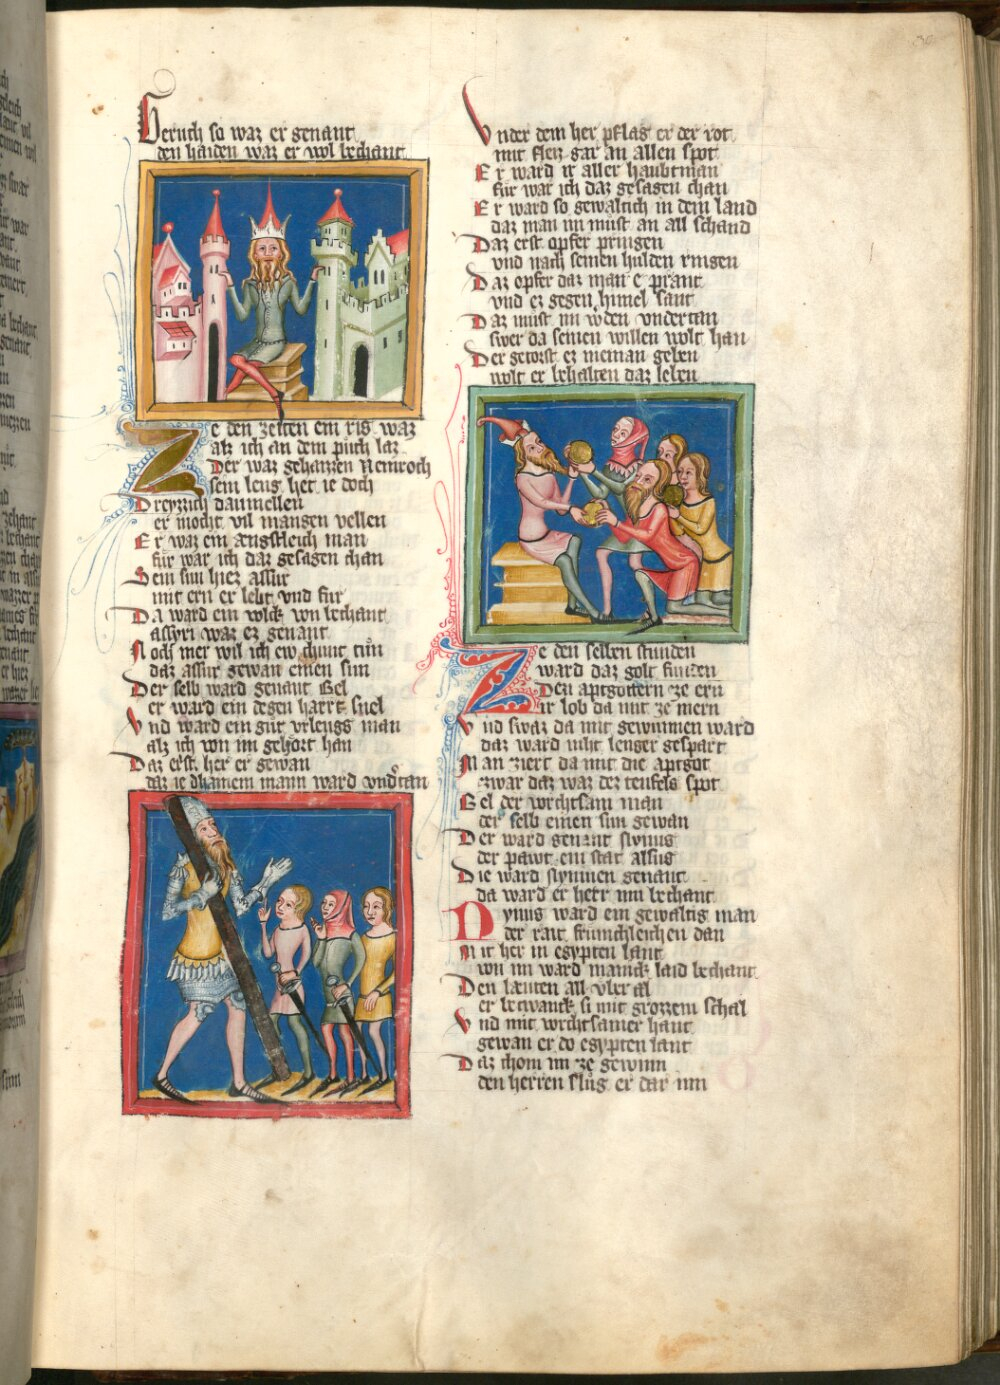 Seruch so waz er genant
den haiden waz er wol bechant
Ze den zeiten ein ris waz
alz ich an dem půch laz
Der waz gehaizzen Nemroch
sein leng het ie doch
Dreyzzich daumellen
er mocht vil mangen vellen
Er waz ein ængstleich man
für war ich daz gesagen chan
Sein sun hiez assur
mit ern er lebt vnd fůr
Da ward ein volck von bechant
assyri waz ez genant
Noch mer wil ich ew chunt tůn
daz assur gewan einen sun
Der selb ward genant Bel
er ward ein degen hartt snel
Vnd ward ein gůt vrleugs man
alz ich von im gehört han
Daz erst her er gewan
daz ie dhainem mann ward vndertan
Vnder dem her pflag er der rot
mit fleiz gar an allen spot
Er ward ir aller haubtman
für war ich daz gesagen chan
Er ward so gewaltich in dem land
daz man im můst an all schand
Daz erst opfer pringen
vnd nach seinen hulden ringen
Daz opfer daz man e prant
vnd ez gegen himel sant
Daz můst im wðen vndertan
swer da seinen willen wolt han
Der getorst ez nieman geben
wolt er behalten daz leben
Ze den selben stunden
ward daz golt funden
Den aptgöttern ze ern
ir lob da mit ze mern
Vnd swaz da mit gewunnen ward
daz ward niht lenger gespart
Man ziert da mit die aptgot
zwar daz waz dez teufels spot
Bel der vorchtsam man
der selb einen sun gewan
Der ward genant Nynus
der pawt ein stat alsus
Die ward Nyniuen genant
da ward er herr inn bechant
Nynus ward ein gewaltig man
der rait fraunchleichen dan
Mit her in egypten lant
von im ward manick laid bechant
Den læuten all vber al
er betwanck si mit grozzem schal
Vnd mit vorchtsamer hant
gewan er do egypten lant
Daz chom im ze gewinn
den herren slůg er dar inn